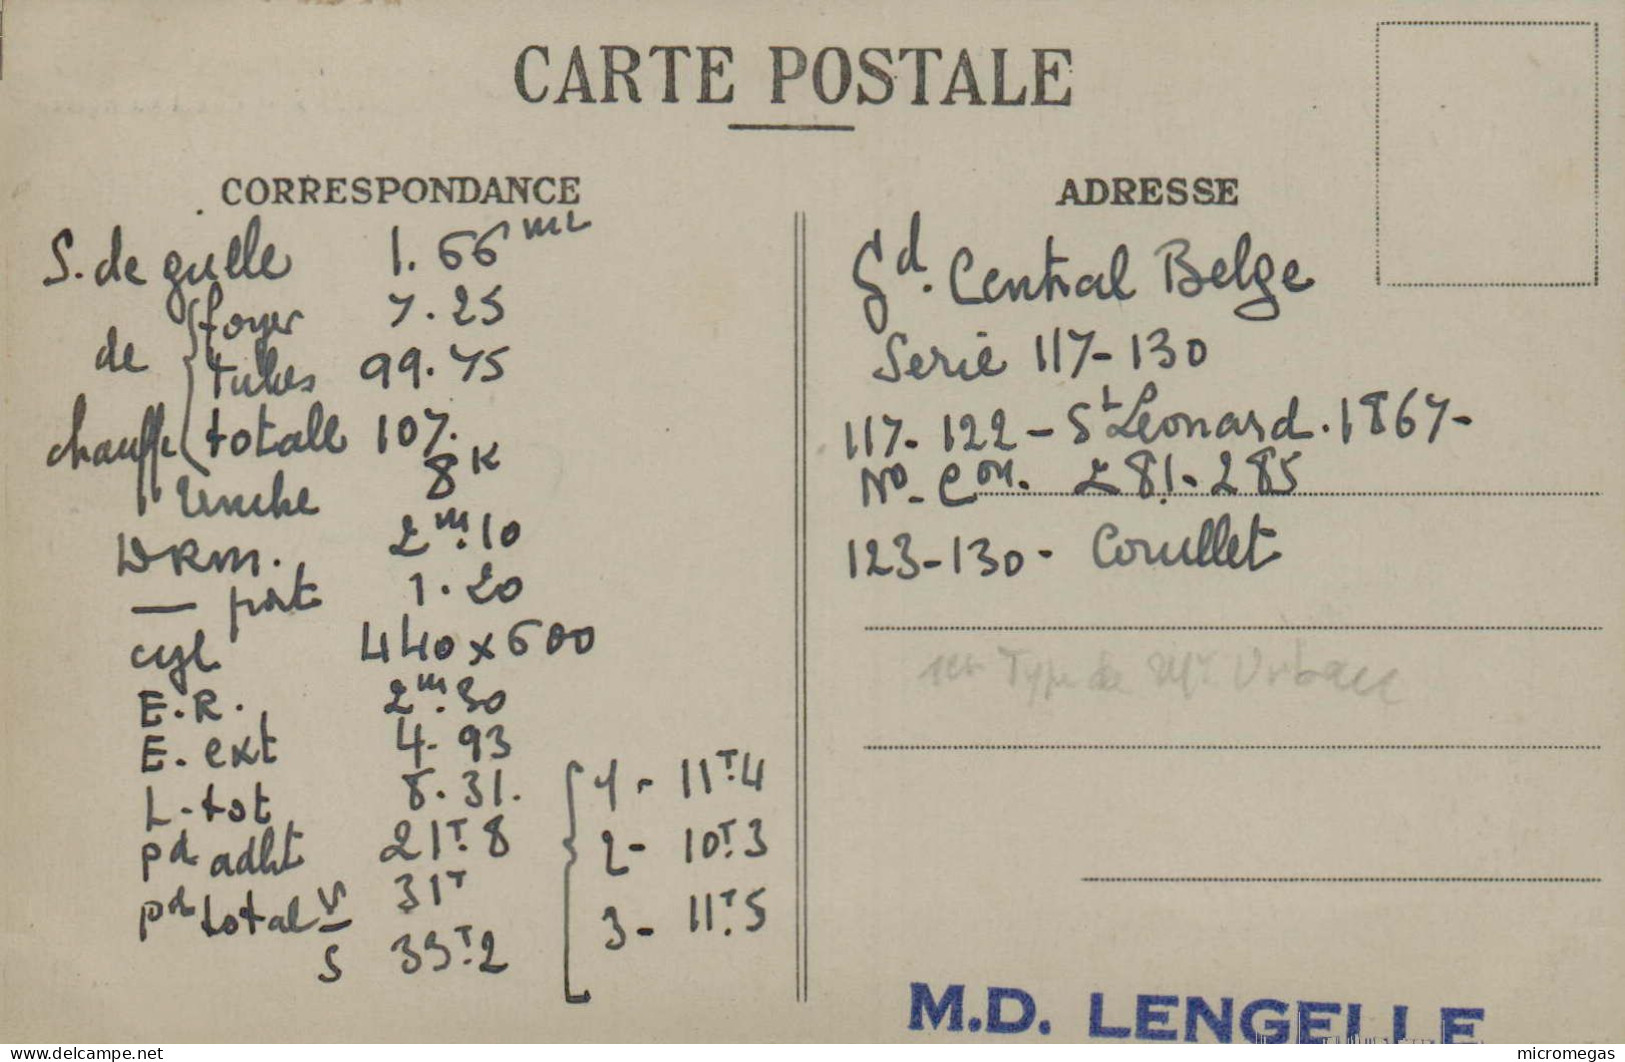 CARTE POSTALE
CORRESPONDANCE
S. de grille 1.66 m2
de chauffe { foyer 7.25
tubes 99.75
totale 107.
Timbre 8K
DRM. 2m.10
— port 1.20
cyl 440 x 600
E.R. 2m.30
E. ext 4.93
L. tot 8.31.
Pd adht 21T.8
Pd total V 31T
S 33T.2
{ 1 - 11T.4
2 - 10T.3
3 - 11T.5
ADRESSE
Gd. Central Belge
Serie 117-130
117-122 - St Léonard. 1867-
No- Con. 281-285
123-130 - Couillet
1er Type de
M.D. LENGELLE
micromegas
www.delcampe.net